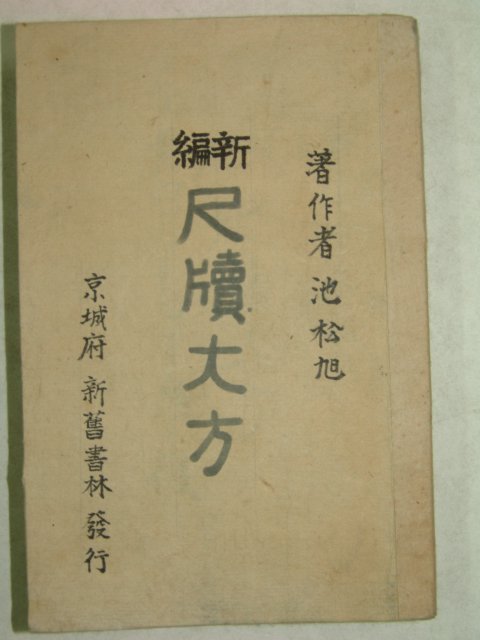 著作者 池松旭
新編
尺牘大方
京城府 新舊書林 發行